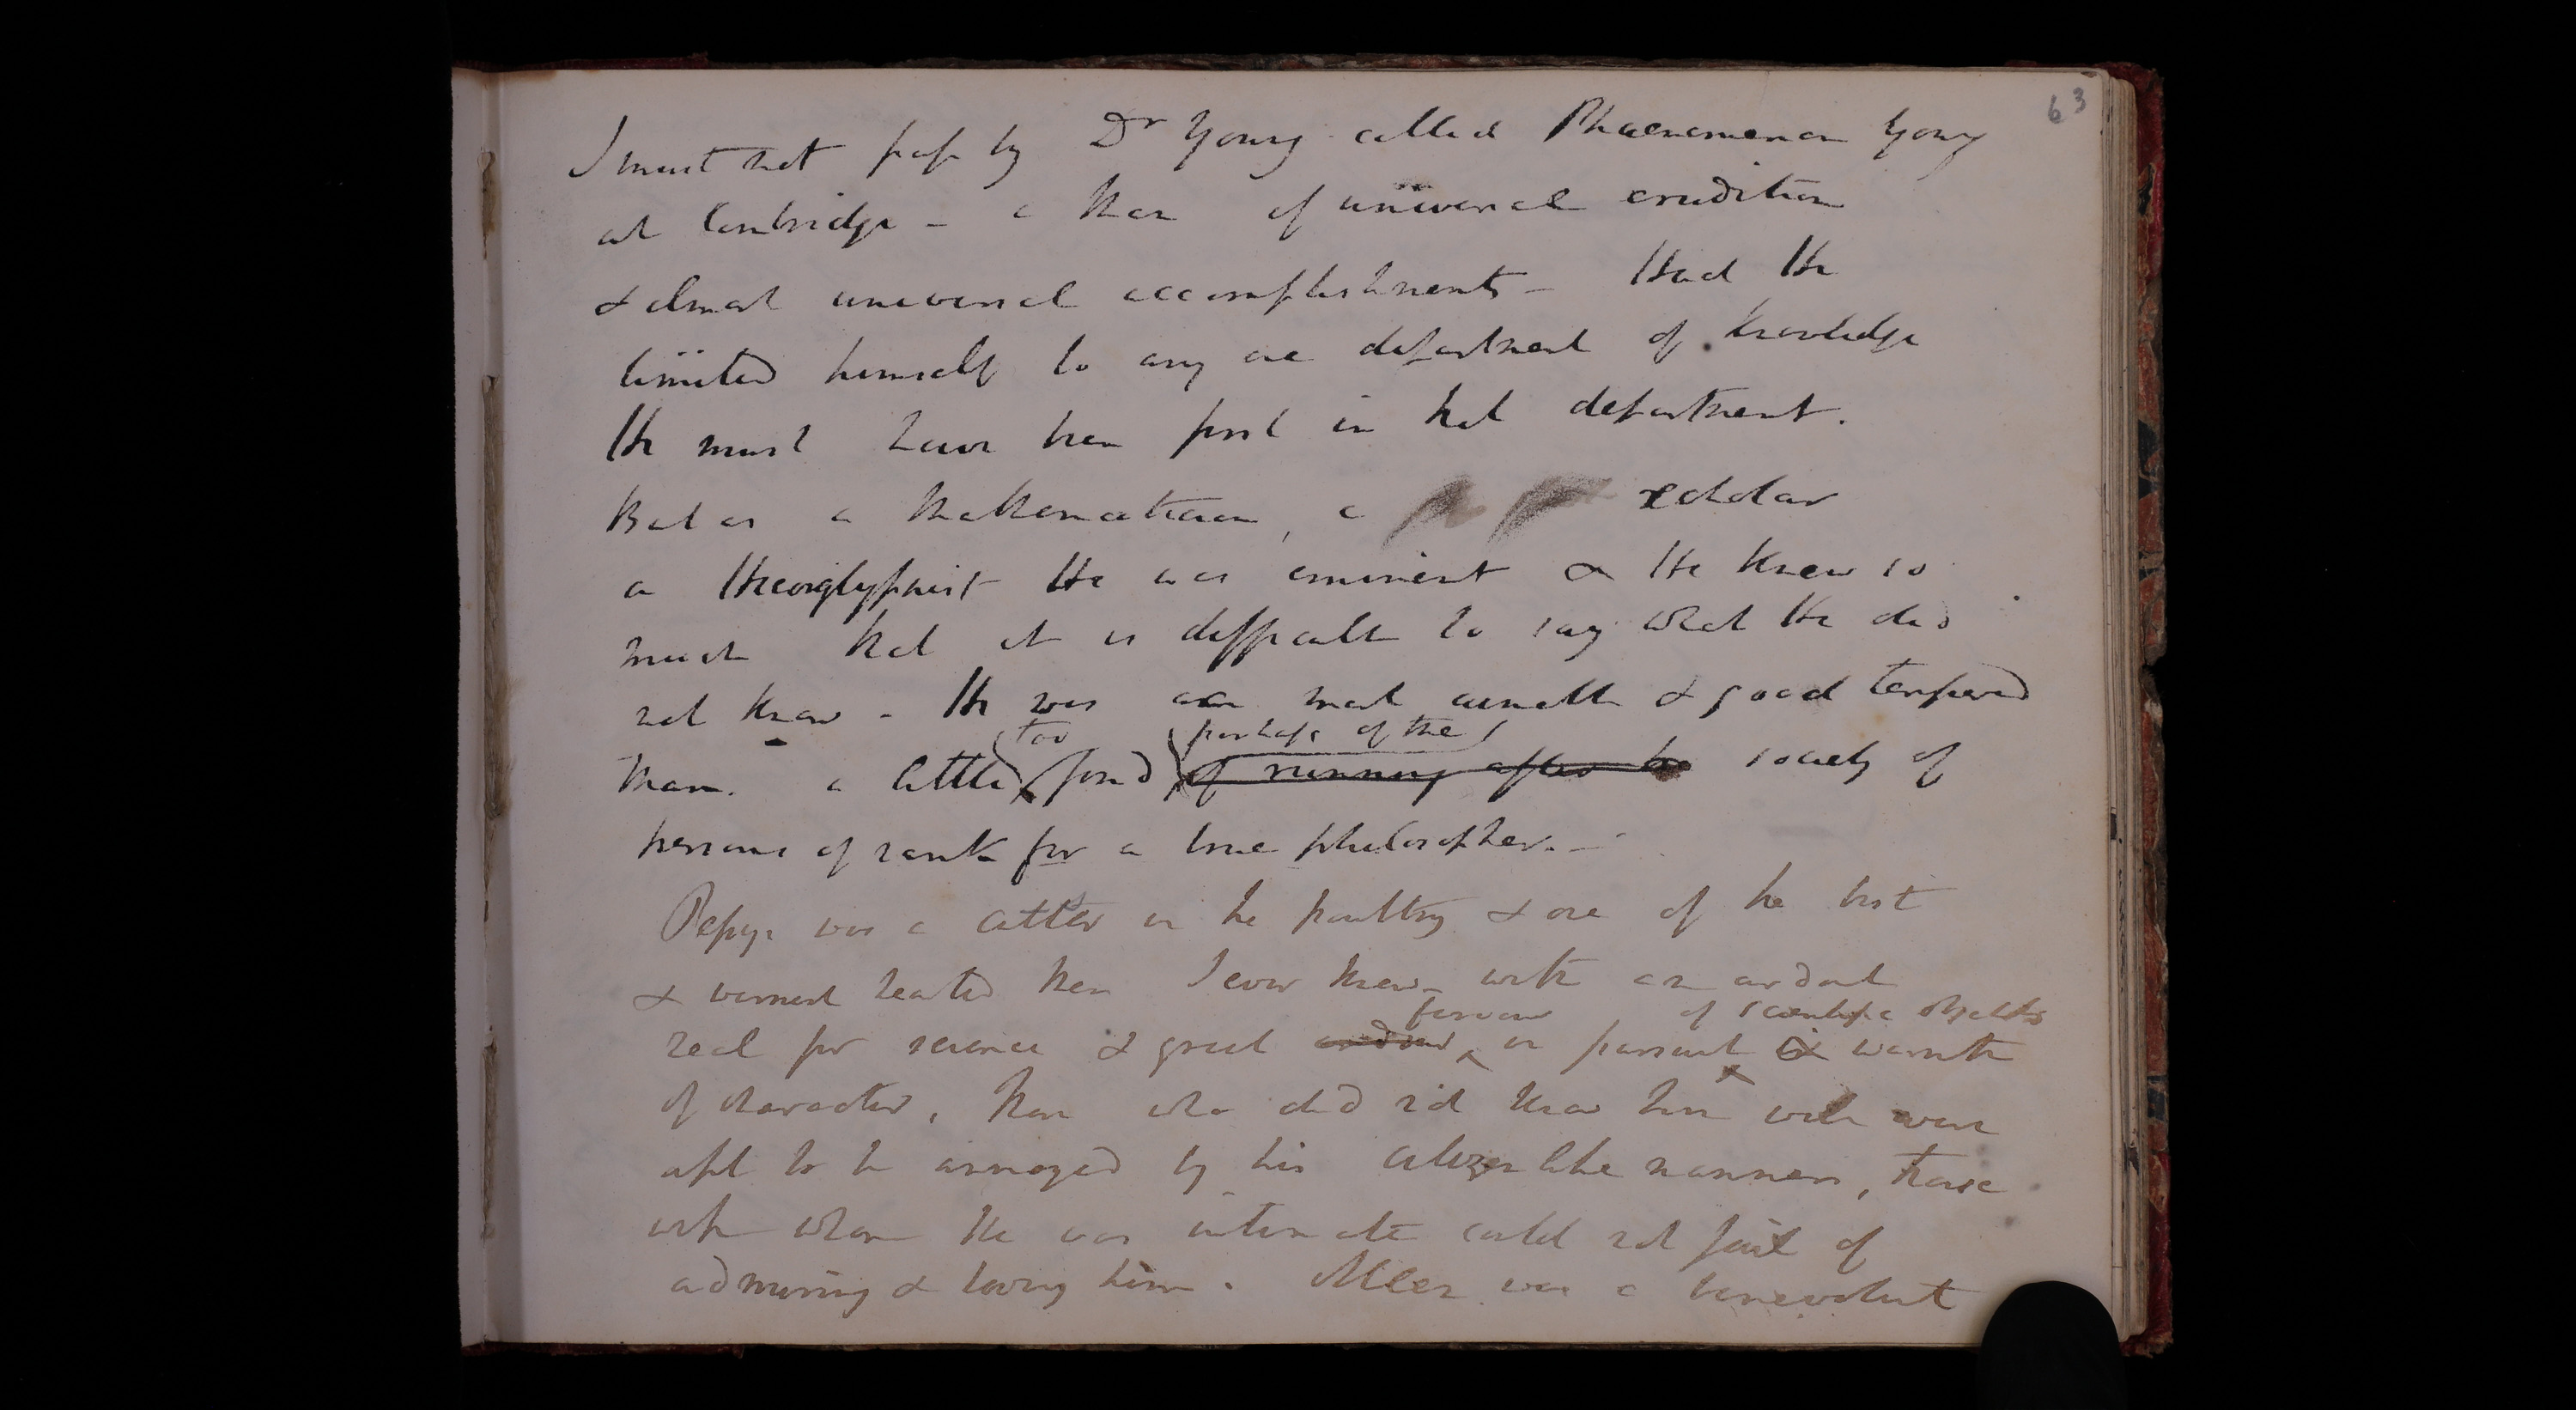 63
I must not pass by Dr Young called Phaenomenon Young
at Cambridge - a Man of universal erudition
& almost universal accomplishments - Had He
limited himself to any one department of knowledge
He must have been first in that department.
But as a Mathematician, a scholar
a Hieroglyphist He was eminent & He knew so
much that it is difficult to say what He did
not know - He was a most amiable & good tempered
too perhaps of the
Man. a little fond of running after the society of
persons of rank for a true philosopher. -
Pepys was a cutler in the poultry & one of the best
& warmest hearted Men I ever knew - with an ardent
fervour of scientific objects
zeal for science & great ardour in pursuit & warmth
of character, those who did not know him well were
apt to be annoyed by his citizen like manners, those
with whom He was intimate could not fail of
admiring & loving him. Allen was a benevolent